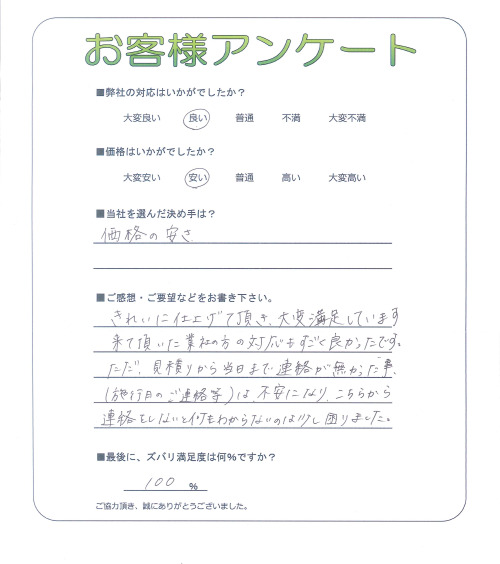 お客様アンケート
■弊社の対応はいかがでしたか？
大変良い 良い 普通 不満 大変不満
■価格はいかがでしたか？
大変安い 安い 普通 高い 大変高い
■当社を選んだ決め手は？
価格の安さ
■ご感想・ご要望などをお書き下さい。
きれいに仕上げて頂き、大変満足しています
来て頂いた業社の方の対応もすごく良かったです。
ただ、見積りから当日まで連絡が無かった事、
(施行日のご連絡等)は、不安になり、こちらから
連絡をしないと何もわからないのは少し困りました。
■最後に、ズバリ満足度は何%ですか？
100 %
ご協力頂き、誠にありがとうございました。